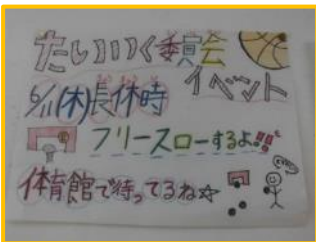 たいいく委員会
イベント
6/11(木)長休時
フリースローするよ!!
体育館で待ってるね☆